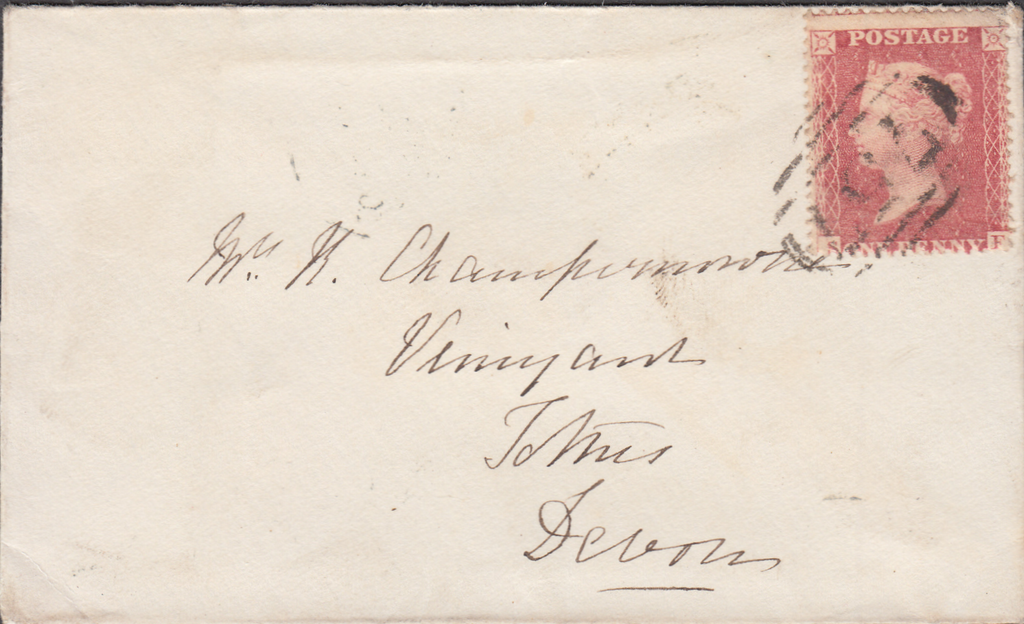 POSTAGE
S ONE PENNY F
Mrs. R. Champernowne,
Vinyard
Totnes
Devon